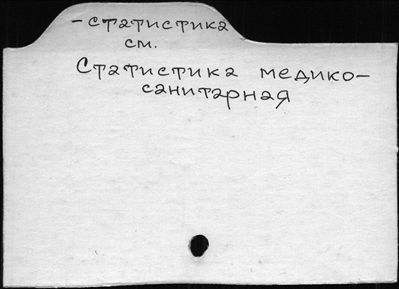 -статистика
см.
Статистика медико-
санитарная